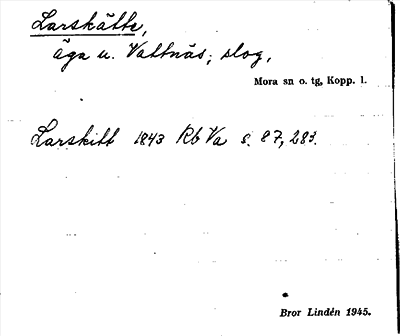 Larskätte,
äga u. Vattnäs; slog,
Mora sn o. tg, Kopp. l.
Larskitt 1843 Rb Va s. 87, 283.
Bror Lindén 1945.